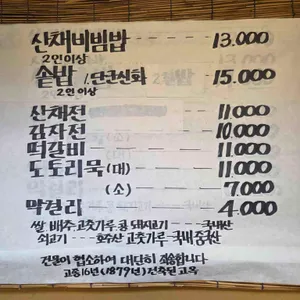 산채비빔밥 13.000
2인이상
솥밥 /. 단군신화 15.000
2인 이상
산채전 11.000
감자전 10.000
떡갈비 11.000
도토리묵 (대) 11.000
(소) 7.000
막걸리 4.000
쌀 배추 고춧가루 콩 돼지고기 국내산
쇠고기 호주산 고춧가루 국내 중국산
건물이 협소하여 대단히 죄송합니다
고종16년 (1879년) 건축된 고옥